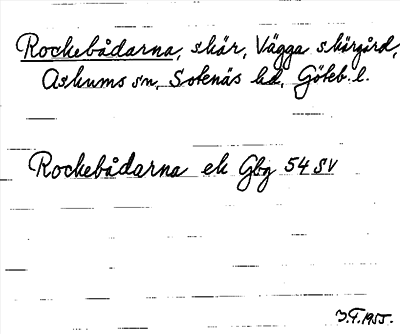 Rockebådarna, skär, Vägga skärgård,
Askums sn, Sotenäs hd, Göteb. l.
Rockebådarna ek Gbg 54 SV
J.T. 1955.